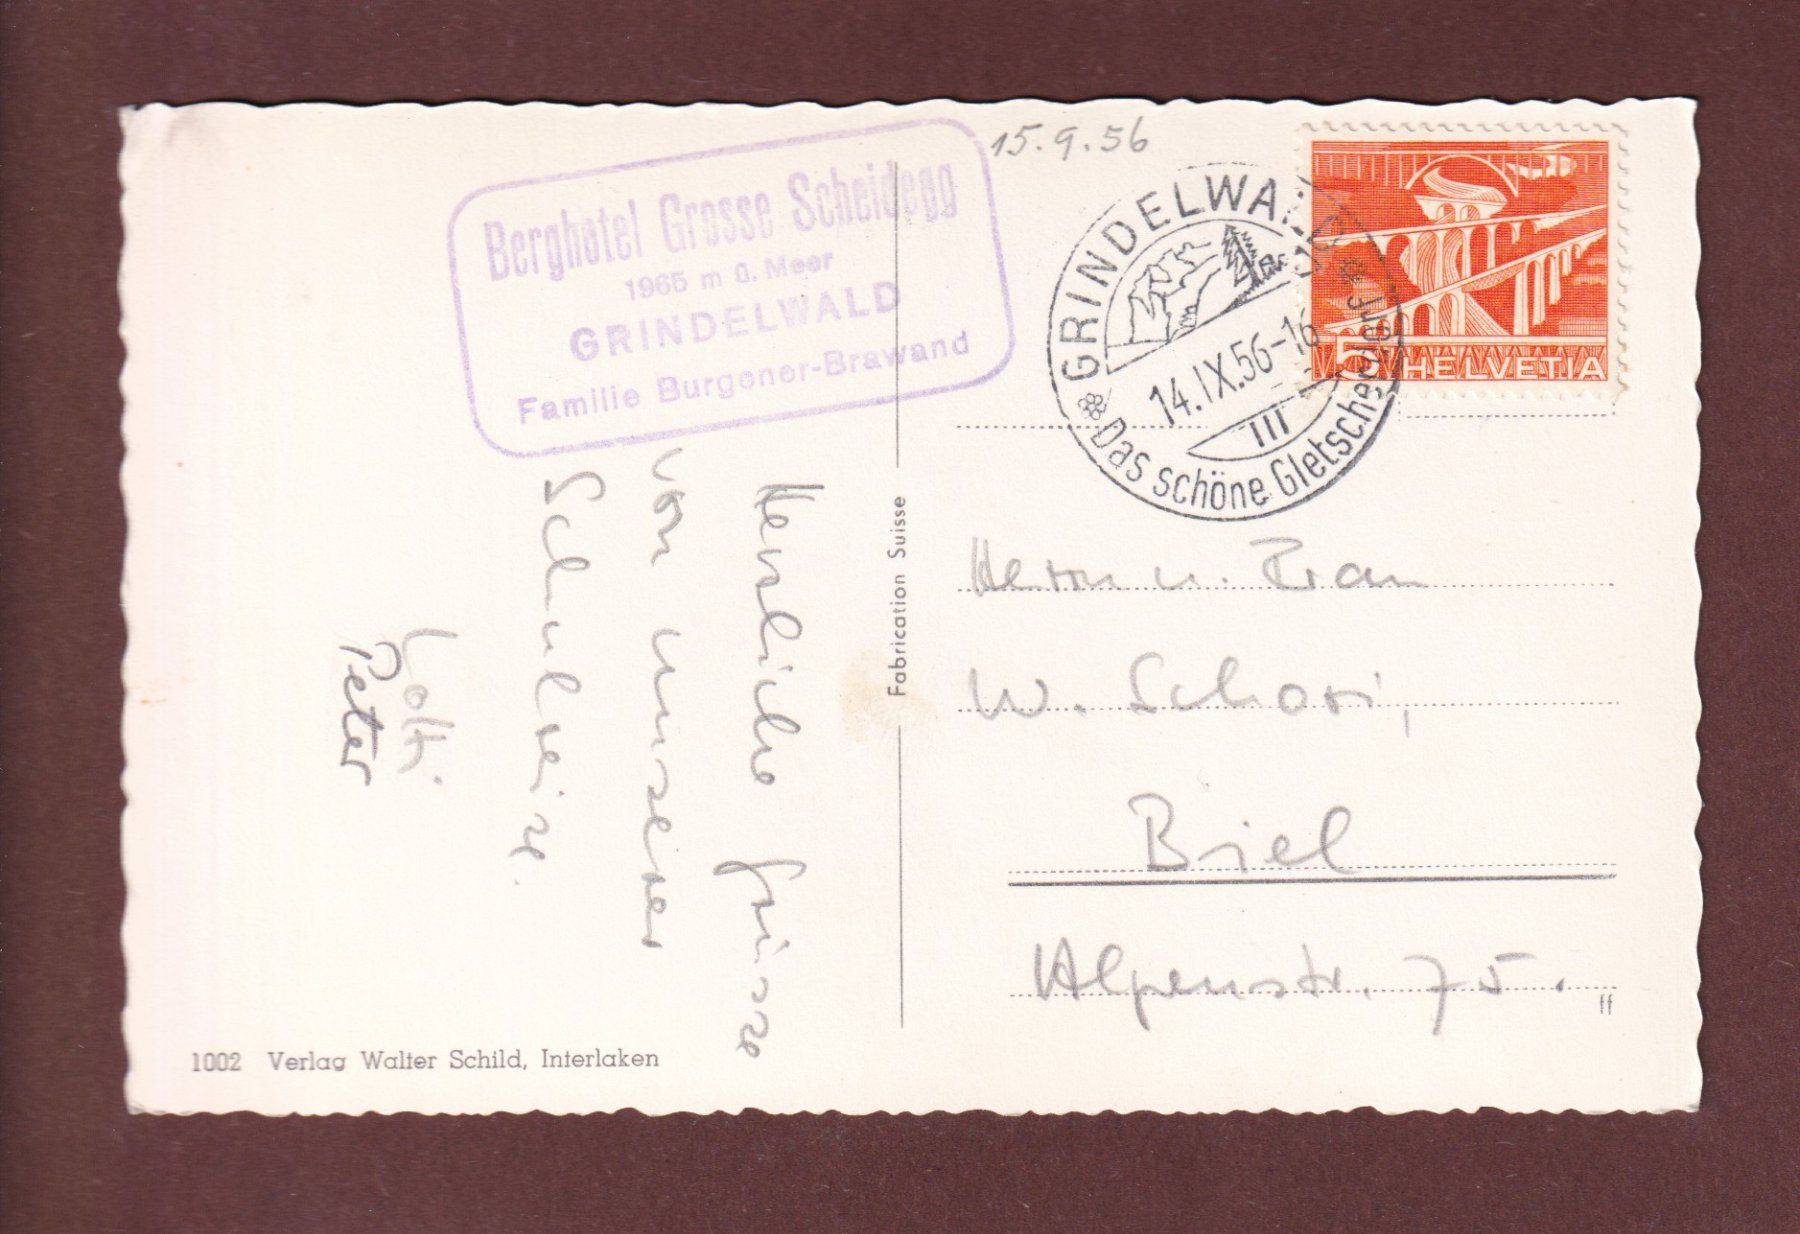 Berghotel Grosse Scheidegg
1965 m ü. Meer
GRINDELWALD
Familie Burgener-Brawand
15.9.56
GRINDELWALD
14.IX.56-16
Das schöne Gletscherdorf
5 HELVETIA
Herzliche Grüsse
von unserer
Schulreise.
Lotti
Peter
Fabrication Suisse
Herrn u. Frau
W. Schori,
Biel
Alpenstr. 75.
ff
1002 Verlag Walter Schild, Interlaken